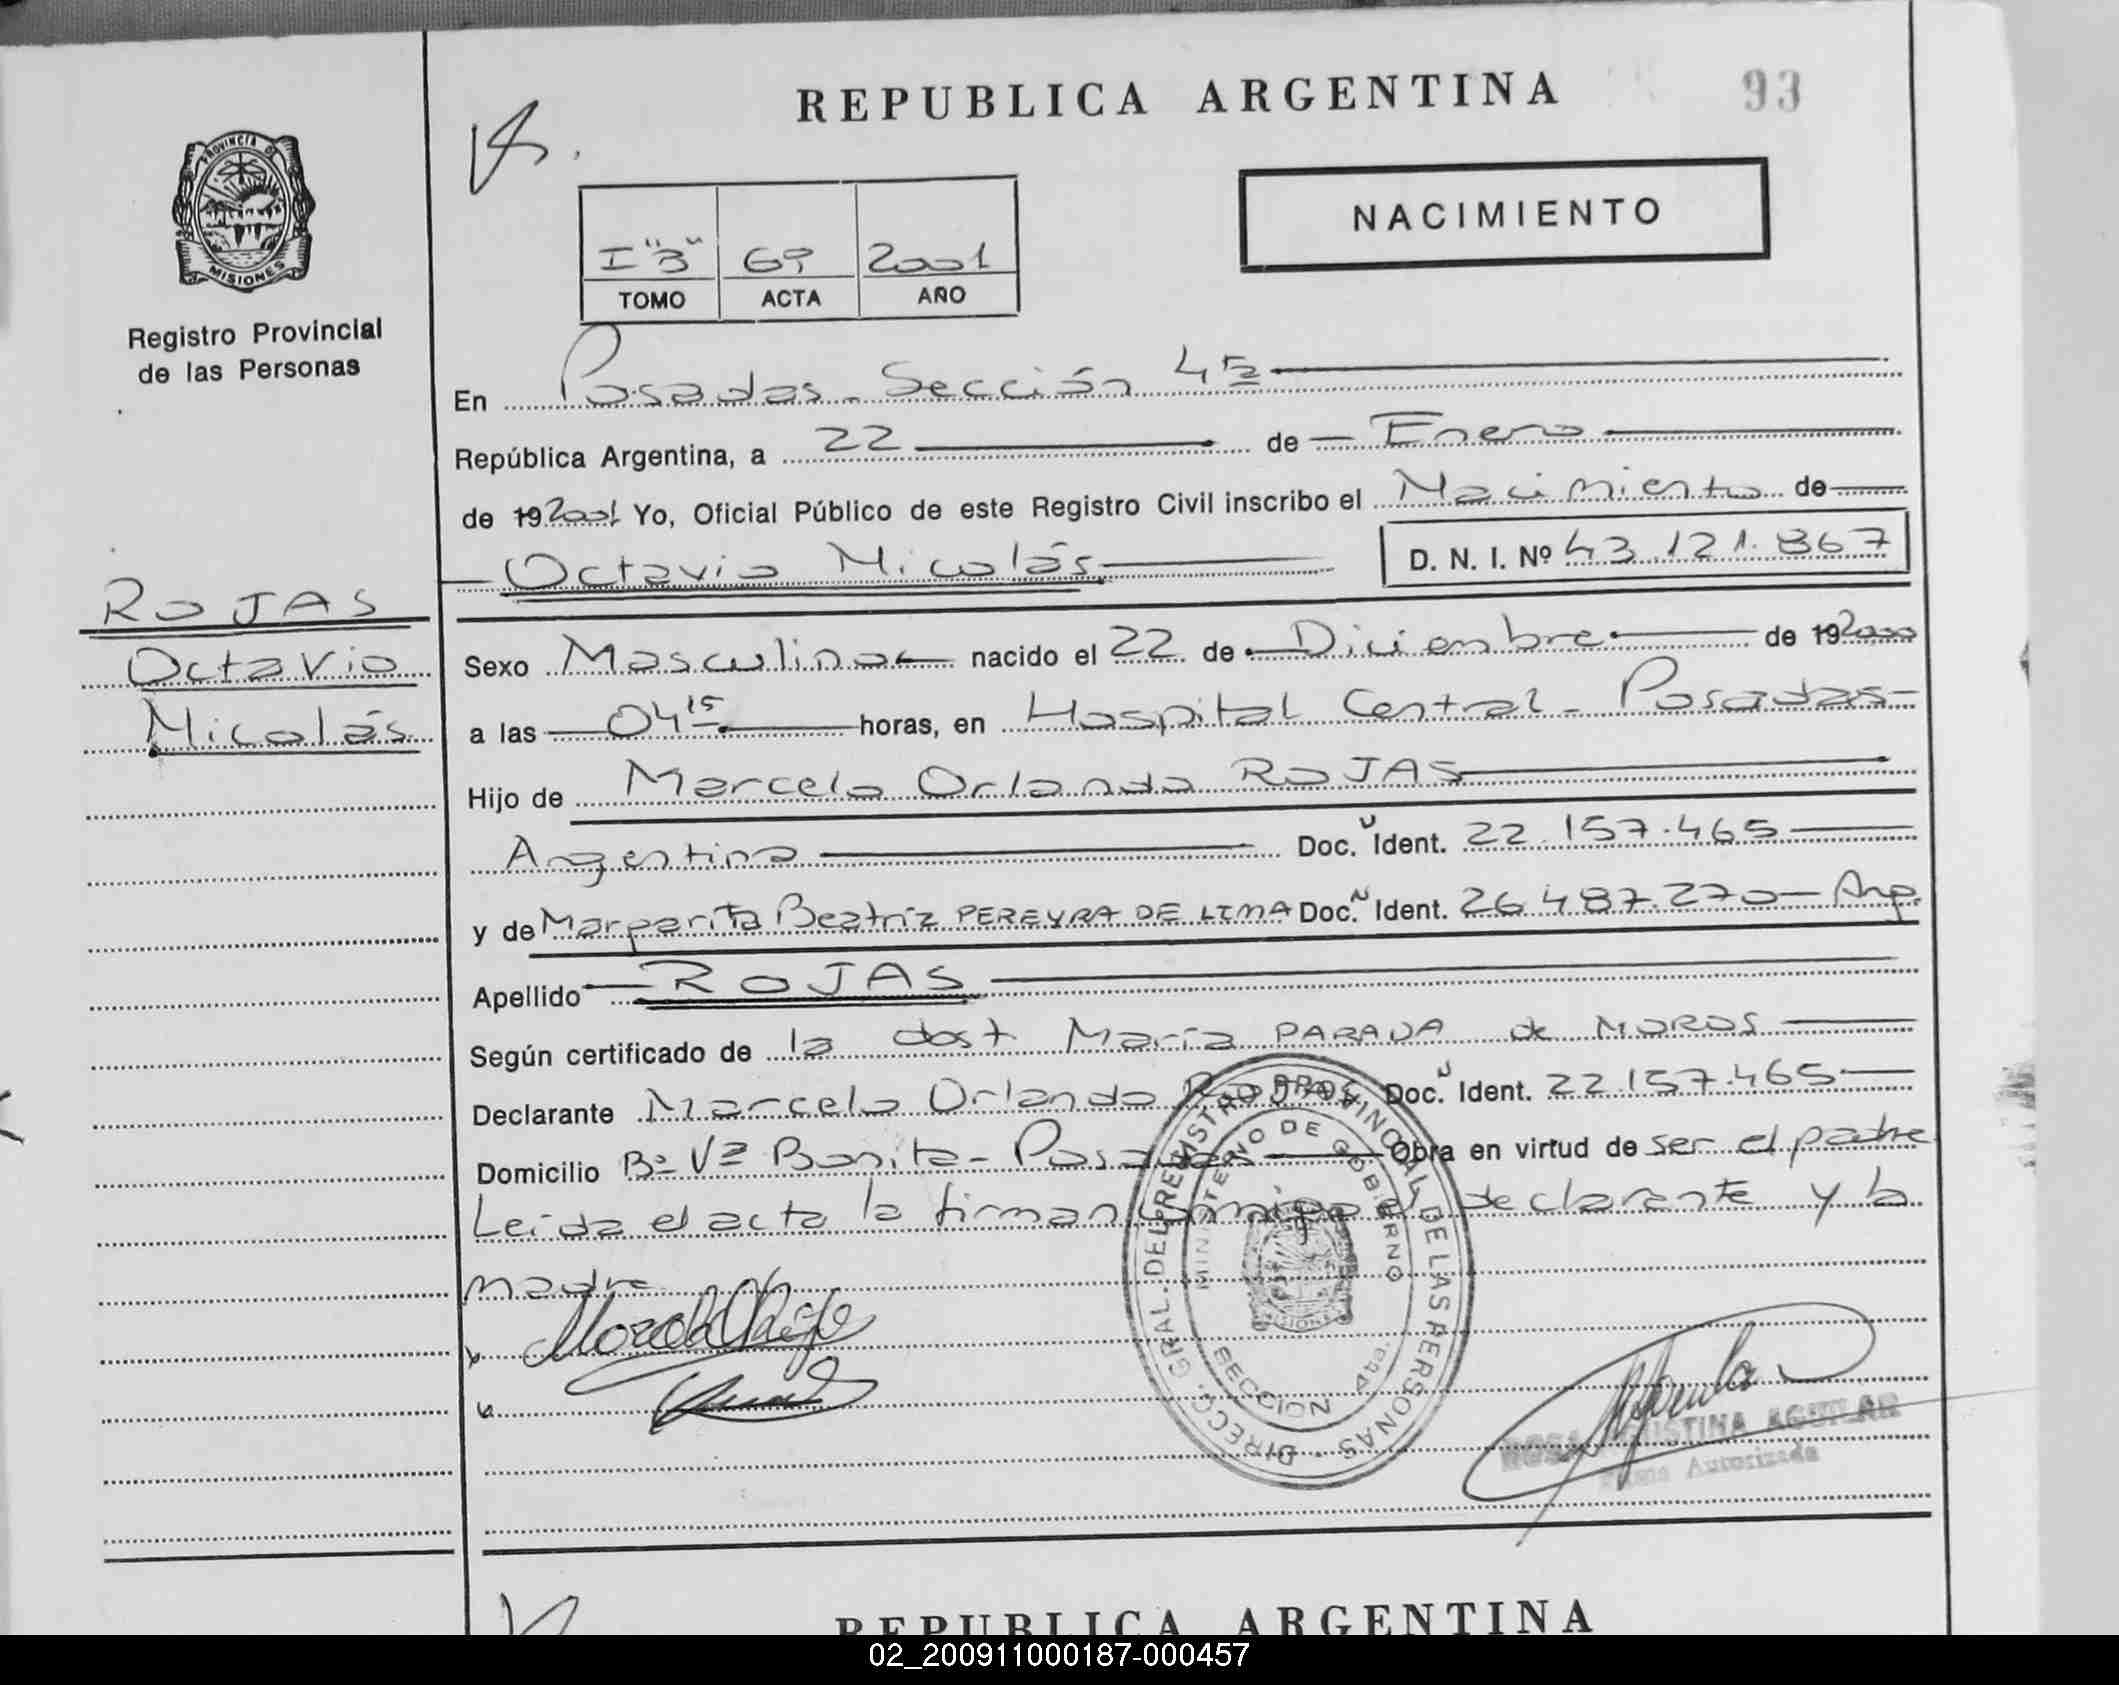 REPUBLICA ARGENTINA
93
PROVINCIA DE
MISIONES
Registro Provincial
de las Personas
NACIMIENTO
I "B" 69 2001
TOMO ACTA AÑO
En Posadas - Sección 4ta
República Argentina, a 22 de Enero
de 19 2001 Yo, Oficial Público de este Registro Civil inscribo el Nacimiento de
Octavio Nicolás D. N. I. Nº 43.121.867
ROJAS
Octavio
Nicolás
Sexo Masculino nacido el 22 de Diciembre de 19 2000
a las 04 15 horas, en Hospital Central - Posadas
Hijo de Marcelo Orlando ROJAS
Argentino Doc. Ident. 22.157.465
y de Margarita Beatríz PEREYRA DE LIMA Doc. Ident. 26.487.270 - Arg.
Apellido ROJAS
Según certificado de la obst María PARADA de MOROS
Declarante Marcelo Orlando ROJAS Doc. Ident. 22.157.465
Domicilio Bº Vª Bonita - Posadas Obra en virtud de ser el padre
Leída el acta la firman conmigo el declarante y la
madre
DIRECC. GRAL. DEL REGISTRO PROVINCIAL DE LAS PERSONAS
MINISTERIO DE GOBIERNO
MISIONES
SECCION 4ta.
ROSA AGUSTINA AGUILAR
Firma Autorizada
REPUBLICA ARGENTINA
02_200911000187-000457